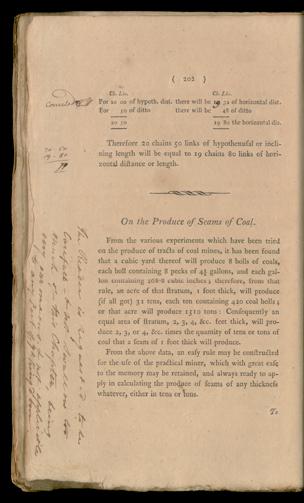 ( 202 )
Ch. Lin. Ch. Lin.
For 20 00 of hypoth. dist. there will be 19 32 of horizontal dist.
For 50 of ditto there will be 48 of ditto
20 50 19 80 the horizontal dis.
20 - 50
19 - 80
Therefore 20 chains 50 links of hypothenusal or incli-
ning length will be equal to 19 chains 80 links of hori-
zontal distance or length.
On the Produce of Seams of Coal.
From the various experiments which have been tried
on the produce of tracts of coal mines, it has been found
that a cubic yard thereof will produce 8 bolls of coals,
each boll containing 8 pecks of 4⅓ gallons, and each gal-
lon containing 268·8 cubic inches; therefore, from that
rule, an acre of that stratum, 1 foot thick, will produce
(if all got) 31 tens, each ten containing 420 coal bolls;
or that acre will produce 1510 tons: Consequently an
equal area of stratum, 2, 3, 4, &c. feet thick, will pro-
duce 2, 3, or 4, &c. times the quantity of tens or tons of
coal that 2 seams of 1 foot thick will produce.
From the above data, an easy rule may be constructed
for the use of the practical miner, which with great ease
to the memory may be retained, and always ready to ap-
ply in calculating the produce of seams of any thickness
whatever, either in tens or tons.
To
The Reader is requested to be
careful